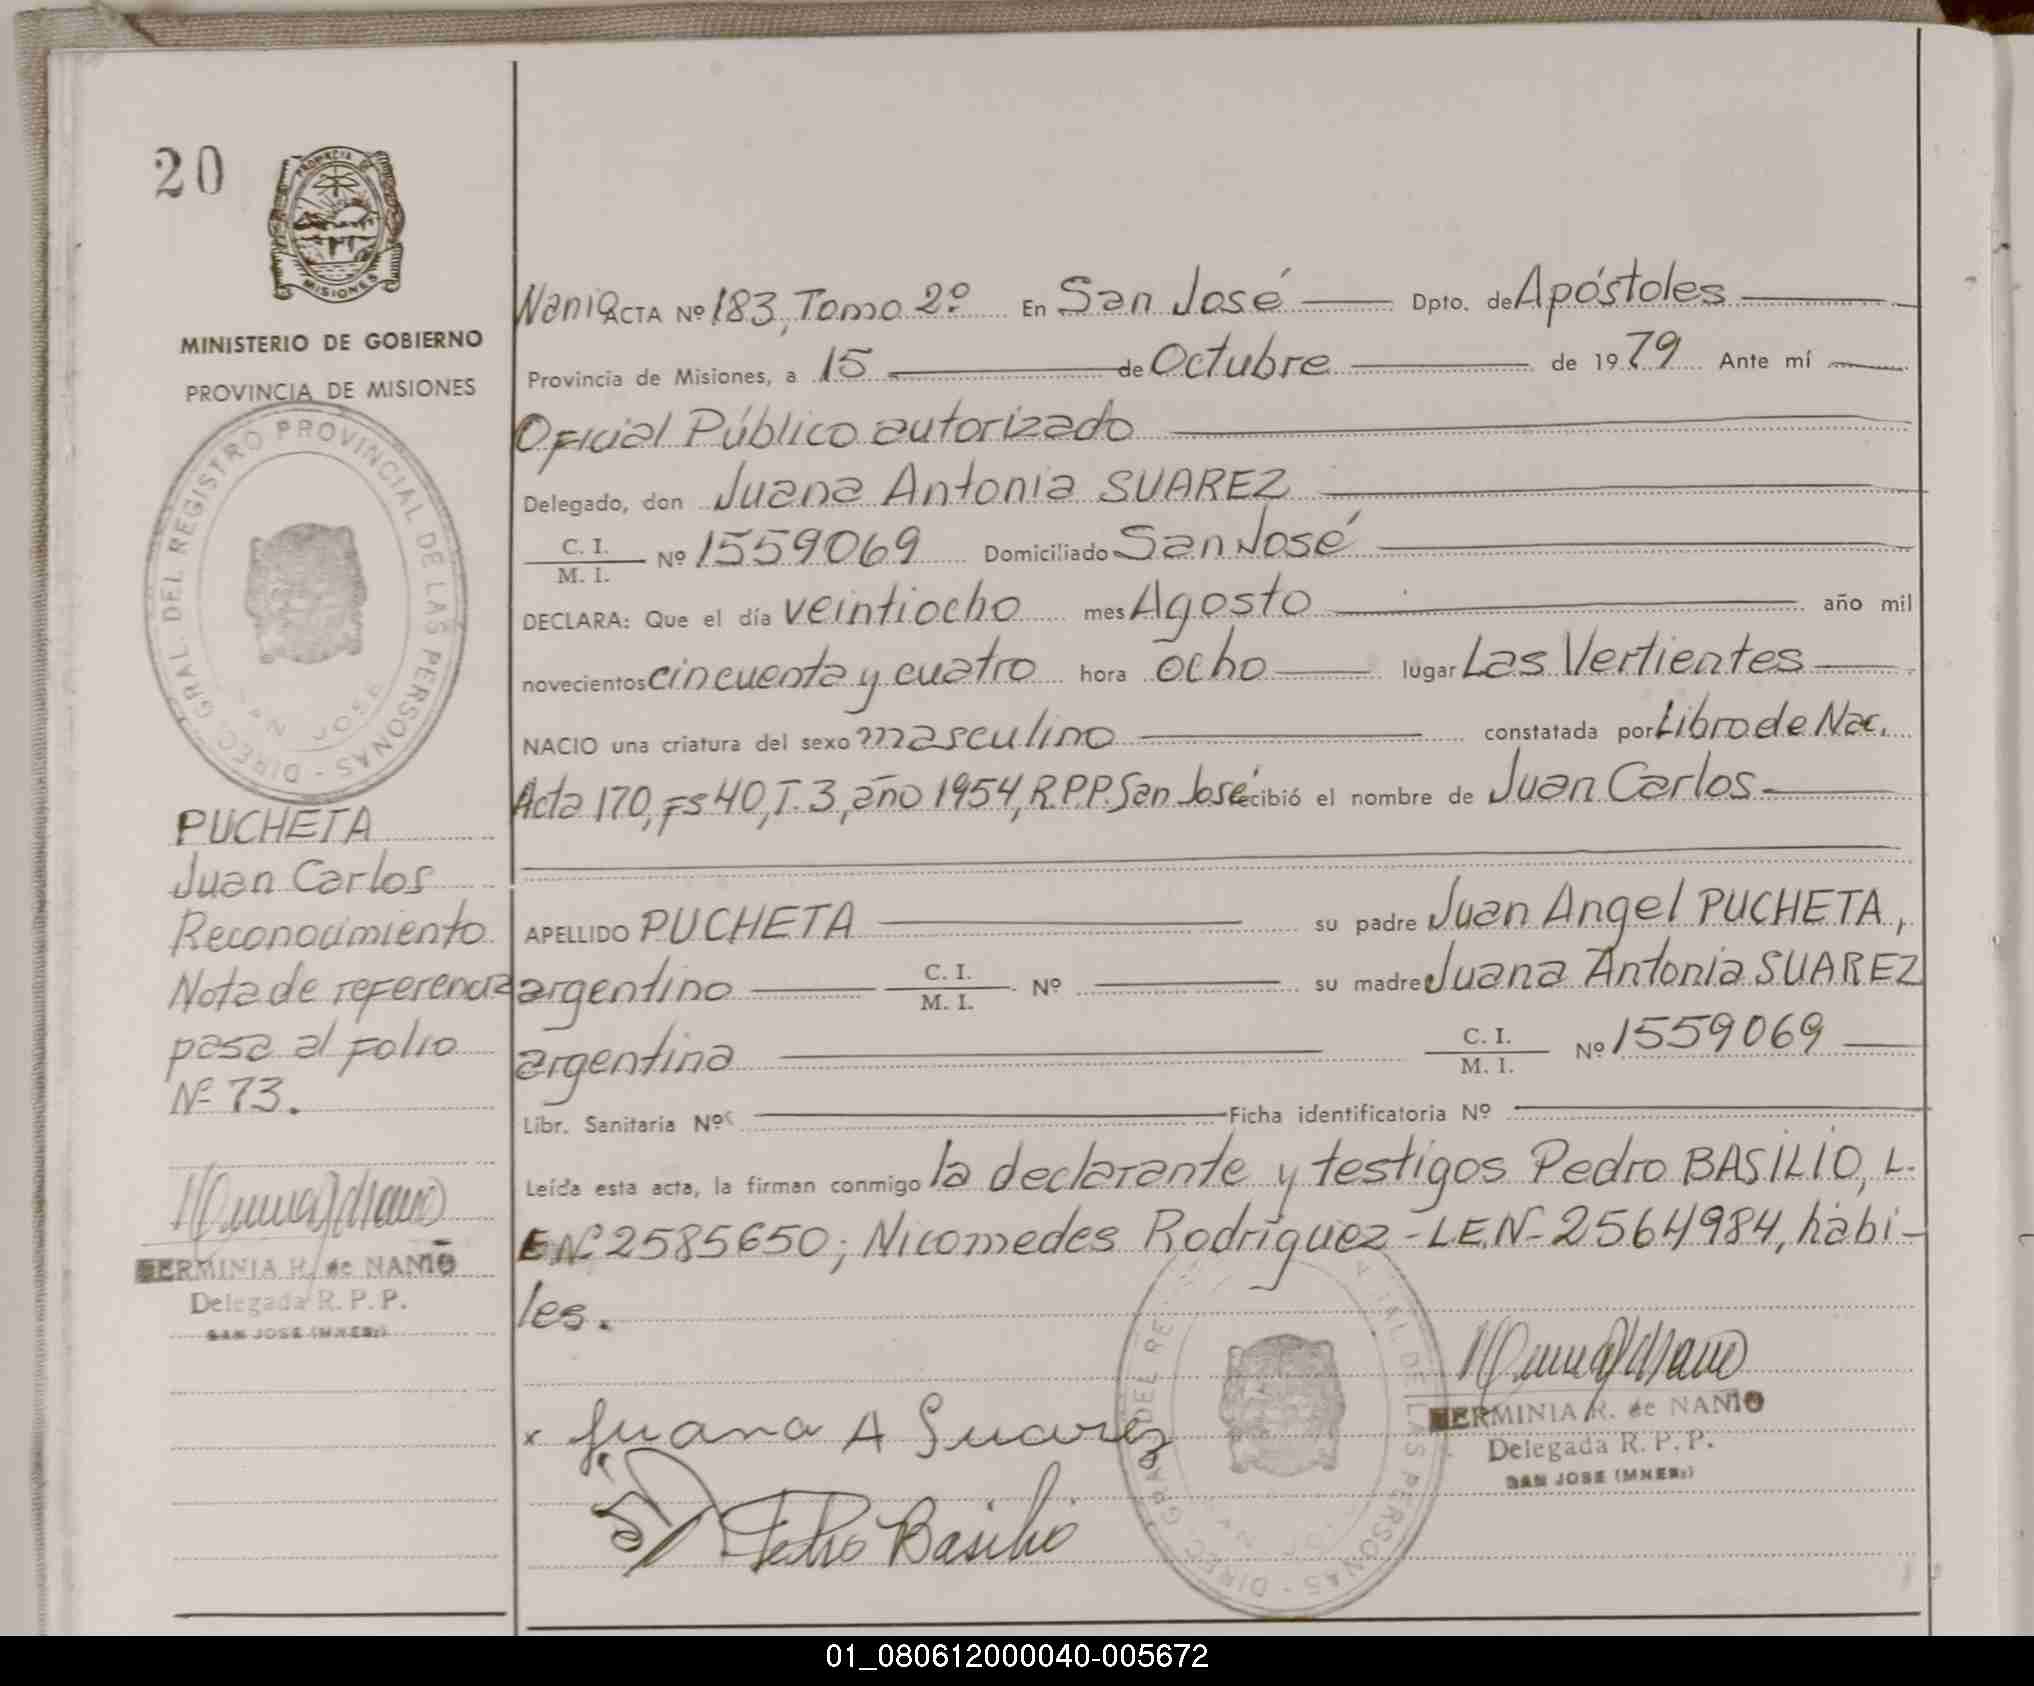 20
PROVINCIA DE
MISIONES
MINISTERIO DE GOBIERNO
PROVINCIA DE MISIONES
DIREC. GRAL. DEL REGISTRO PROVINCIAL DE LAS PERSONAS -
SAN JOSE
PUCHETA
Juan Carlos
Reconocimiento
Nota de referencia
pasa al folio
Nº 73.
HERMINIA R. de NANIO
Delegada R. P. P.
SAN JOSE (MNES:)
Nanio ACTA Nº 183, Tomo 2º En San José Dpto. de Apóstoles
Provincia de Misiones, a 15 de Octubre de 1979 Ante mí
Oficial Público autorizado
Delegado, don Juana Antonia SUAREZ
C. I.
M. I. Nº 1559069 Domiciliado San José
DECLARA: Que el día veintiocho mes Agosto año mil
novecientos cincuenta y cuatro hora ocho lugar Las Vertientes
NACIO una criatura del sexo masculino constatada por Libro de Nac.
Acta 170, Fs 40, T. 3, año 1954, R.P.P. San José recibió el nombre de Juan Carlos
APELLIDO PUCHETA su padre Juan Angel PUCHETA,
argentino C. I.
M. I. Nº su madre Juana Antonia SUAREZ
argentina C. I.
M. I. Nº 1559069
Libr. Sanitaria Nº Ficha identificatoria Nº
Leída esta acta, la firman conmigo la declarante y testigos Pedro BASILIO, L.
E Nº 2585650; Nicomedes Rodríguez - L.E.Nº 2564984, hábi-
les.
x Juana A Suarez
Pedro Basilio
DIREC. GRAL. DEL REGISTRO PROVINCIAL DE LAS PERSONAS -
SAN JOSE
HERMINIA R. de NANIO
Delegada R. P. P.
SAN JOSE (MNES:)
01_080612000040-005672